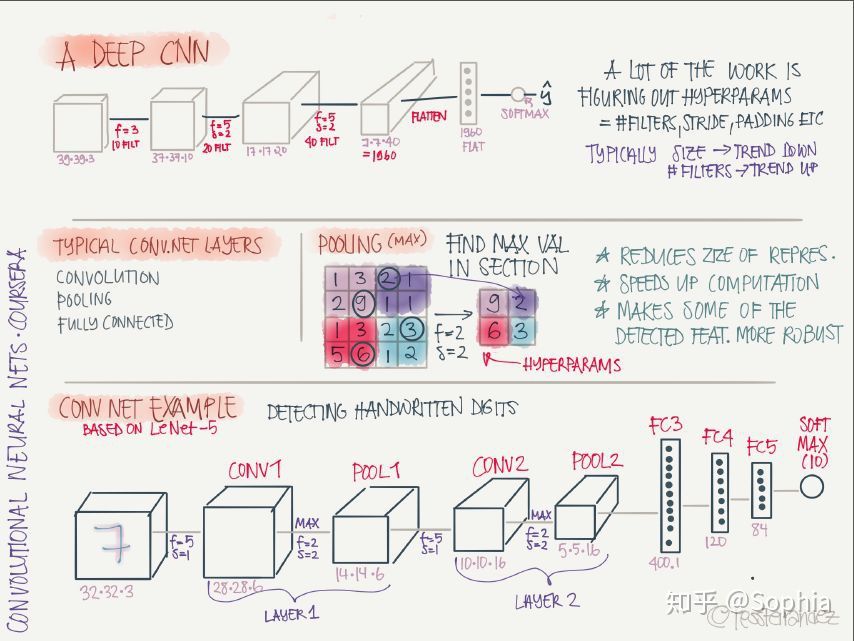 A DEEP CNN
39·39·3
f=3
10 FILT
37·37·10
f=5
s=2
20 FILT
17·17·20
f=5
s=2
40 FILT
7·7·40
=1960
FLATTEN
1960
FLAT
ŷ
SOFTMAX
A LOT OF THE WORK IS
FIGURING OUT HYPERPARAMS
= #FILTERS, STRIDE, PADDING ETC
TYPICALLY SIZE → TREND DOWN
#FILTERS → TREND UP
TYPICAL CONV.NET LAYERS
CONVOLUTION
POOLING
FULLY CONNECTED
POOLING (MAX)
FIND MAX VAL
IN SECTION
1 3 2 1
2 9 1 1
1 3 2 3
5 6 1 2
f=2
s=2
9 2
6 3
HYPERPARAMS
* REDUCES ZIZE OF REPRES.
* SPEEDS UP COMPUTATION
* MAKES SOME OF THE
DETECTED FEAT. MORE ROBUST
CONV NET EXAMPLE
BASED ON LeNet-5
DETECTING HANDWRITTEN DIGITS
7
32·32·3
f=5
s=1
CONV1
28·28·6
MAX
f=2
s=2
POOL1
14·14·6
LAYER 1
f=5
s=1
CONV2
10·10·16
MAX
f=2
s=2
POOL2
5·5·16
LAYER 2
FC3
400.1
FC4
120
FC5
84
SOFT
MAX
(10)
CONVOLUTIONAL NEURAL NETS · COURSERA
知乎 @Sophia
©TessFerrandez